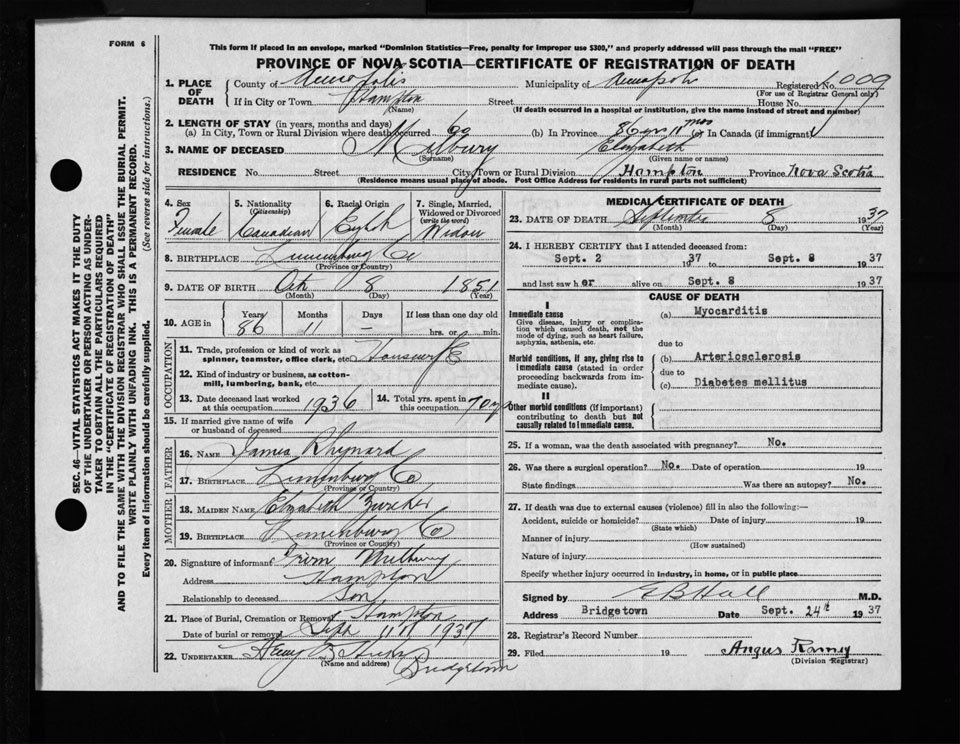 FORM 6
This form if placed in an envelope, marked "Dominion Statistics—Free, penalty for improper use $300," and properly addressed will pass through the mail "FREE"
PROVINCE OF NOVA SCOTIA—CERTIFICATE OF REGISTRATION OF DEATH
1. PLACE OF DEATH County of Annapolis Municipality of Annapolis Registered No. 1009
(For use of Registrar General only)
If in City or Town Hampton Street House No.
(Name) (If death occurred in a hospital or institution, give the name instead of street and number)
2. LENGTH OF STAY (in years, months and days)
(a) In City, Town or Rural Division where death occurred 69 (b) In Province 86 yrs 11 mos (c) in Canada (if immigrant)
3. NAME OF DECEASED Milbury Elizabeth
(Surname) (Given name or names)
RESIDENCE No. Street City, Town or Rural Division Hampton Province Nova Scotia
(Residence means usual place of abode. Post Office Address for residents in rural parts not sufficient)
4. Sex Female
5. Nationality (Citizenship) Canadian
6. Racial Origin
7. Single, Married, Widowed or Divorced (write the word) Widow
8. BIRTHPLACE Lunenburg Co
(Province or Country)
9. DATE OF BIRTH Oct 8 1851
(Month) (Day) (Year)
10. AGE in Years 86 Months 11 Days – If less than one day old hrs. or min.
OCCUPATION
11. Trade, profession or kind of work as spinner, teamster, office clerk, etc. Housewife
12. Kind of industry or business, as cotton-mill, lumbering, bank, etc.
13. Date deceased last worked at this occupation 1936 14. Total yrs. spent in this occupation 70 yrs
15. If married give name of wife or husband of deceased
FATHER
16. NAME James Rhynard
17. BIRTHPLACE Lunenburg Co
(Province or Country)
MOTHER
18. MAIDEN NAME Elizabeth
19. BIRTHPLACE Lunenburg Co
(Province or Country)
20. Signature of informant Milbury
Address Hampton
Relationship to deceased Son
21. Place of Burial, Cremation or Removal Hampton
Date of burial or removal Sept 11th 1937
22. UNDERTAKER Bridgetown
(Name and address)
MEDICAL CERTIFICATE OF DEATH
23. DATE OF DEATH September 8 1937
(Month) (Day) (Year)
24. I HEREBY CERTIFY that I attended deceased from:
Sept. 2 1937 to Sept. 8 1937
and last saw her alive on Sept. 8 1937
CAUSE OF DEATH
I
Immediate cause
Give disease, injury or complication which caused death, not the mode of dying, such as heart failure, asphyxia, asthenia, etc.
(a) Myocarditis
due to
Morbid conditions, if any, giving rise to immediate cause (stated in order proceeding backwards from immediate cause).
(b) Arteriosclerosis
due to
(c) Diabetes mellitus
II
Other morbid conditions (if important) contributing to death but not causally related to immediate cause.
25. If a woman, was the death associated with pregnancy? No.
26. Was there a surgical operation? No. Date of operation 19
State findings Was there an autopsy? No.
27. If death was due to external causes (violence) fill in also the following:—
Accident, suicide or homicide? Date of injury 19
(State which)
Manner of injury
(How sustained)
Nature of injury
Specify whether injury occurred in industry, in home, or in public place
Signed by E B Hall M.D.
Address Bridgetown Date Sept. 24th 1937
28. Registrar's Record Number
29. Filed 19 Angus Ramey
(Division Registrar)
SEC. 46—VITAL STATISTICS ACT MAKES IT THE DUTY
OF THE UNDERTAKER OR PERSON ACTING AS UNDER-
TAKER TO OBTAIN ALL THE PARTICULARS REQUIRED
IN THE "CERTIFICATE OF REGISTRATION OF DEATH"
AND TO FILE THE SAME WITH THE DIVISION REGISTRAR WHO SHALL ISSUE THE BURIAL PERMIT.
WRITE PLAINLY WITH UNFADING INK. THIS IS A PERMANENT RECORD.
Every item of information should be carefully supplied. (See reverse side for instructions.)